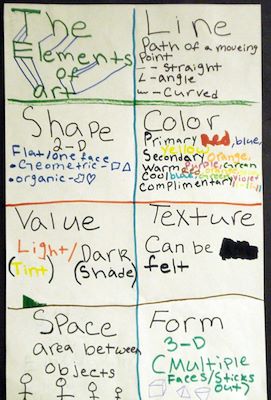 The
Elements
of
art
Line
Path of a moveing
point
- straight
L - angle
- Curved
Shape
2-D
Flat/one face
Geometric -
organic -
Color
Primary Red, blue,
yellow
Secondary Orange,
Purple, green
warm Red
Cool blue, green
complimentary violet
Value
Light/
(Tint)
Dark
(Shade)
Texture
Can be
felt
Space
area between
objects
Form
3-D
(Multiple
Faces/Sticks
out)